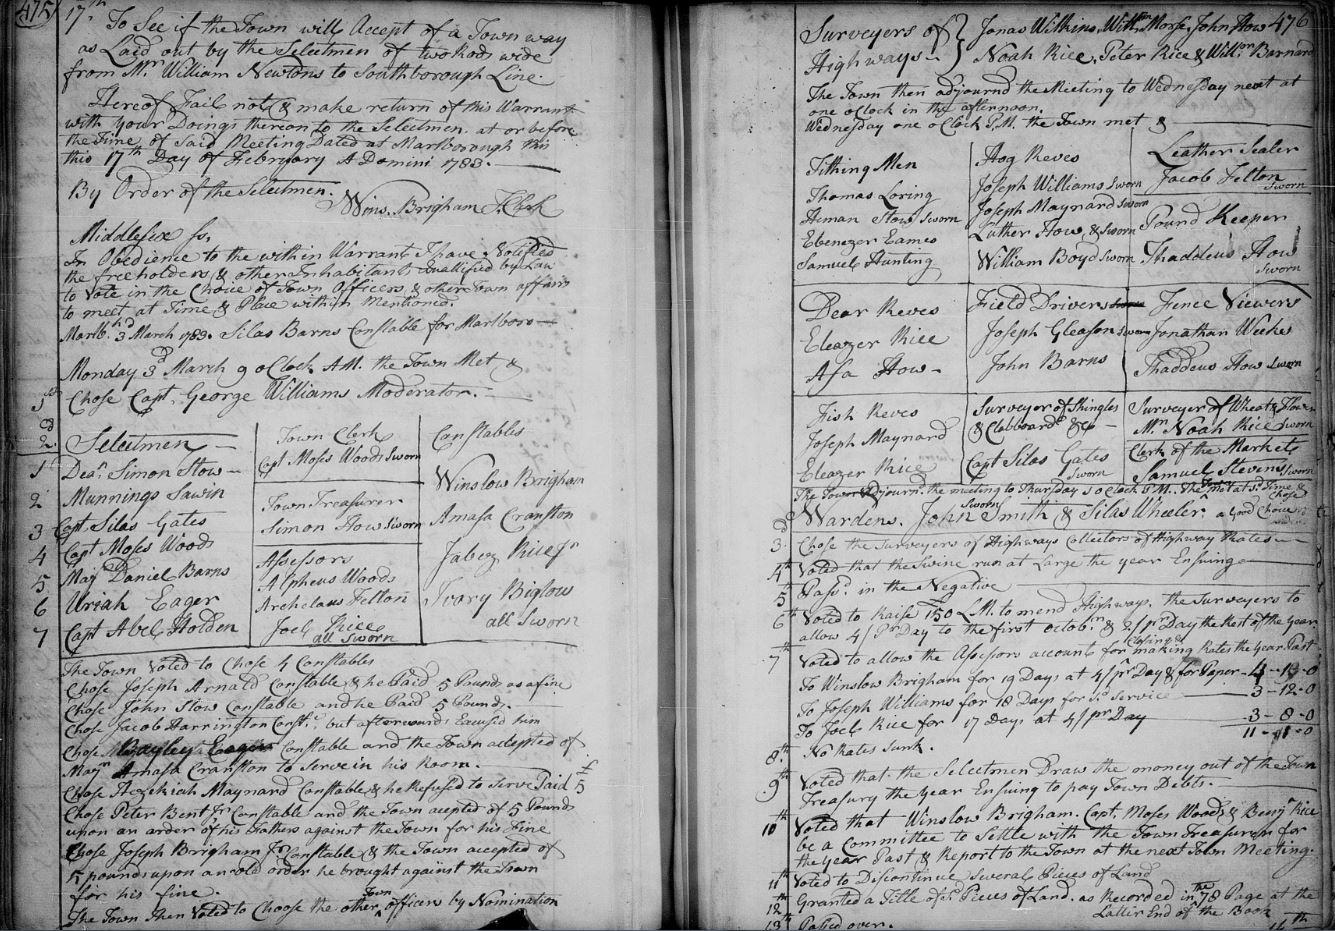 475
17th To See if the Town will Accept of a Town way
as Laid out by the Selectmen of two Rods wide
from Mr. William Newtons to Southborough Line.
Hereof Fail not & make return of this Warrant
with your Doings thereon to the Selectmen at or before
the Time of Said Meeting Dated at Marlborough this
this 17th Day of February A Domini 1783.
By Order of the Selectmen.
Wins. Brigham T. Clerk
Middlesex ss.
In Obedience to the within Warrant I have Notified
the freeholders & other Inhabitants Quallified by Law
to Vote in the Choice of Town Officers & other Town affairs
to meet at Time & Place within Mentioned.
Marlb. 3d March 1783. Silas Barns Constable for Marlboro
Monday 3d March 9 o Clock AM. the Town Met &
1st Chose Capt. George Williams Moderator.
2d Selectmen
1 Dean. Simon Stow
2 Munnings Sawin
3 Capt. Silas Gates
4 Capt Moses Woods
5 Maj. Daniel Barns
6 Uriah Eager
7 Capt Abel Holden
Town Clerk
Capt Moses Woods Sworn
Town Treasurer
Simon Stow Sworn
Assessors
Alpheus Woods
Archelaus Felton
Joel Rice
all Sworn
Constables
Winslow Brigham
Amasa Cranston
Jabez Rice Jr
Ivory Biglow
all Sworn
The Town Voted to Chose 4 Constables
Chose Joseph Arnald Constable & he Paid 5 Pounds as a fine
Chose John Stow Constable and he Paid 5 Pounds.
Chose Jacob Harrington Const. but afterwards Excused him
Chose Constable and the Town accepted of
Amasa Cranston to Serve in his Room.
Chose Hezekiah Maynard Constable & he Refused to Serve Paid 5
Chose Peter Bent Jr Constable and the Town accepted of 5 Pounds
upon an order of his Fathers against the Town for his Fine
Chose Joseph Brigham Jr Constable & the Town accepted of
5 pounds upon an old order he brought against the Town
for his fine.
The Town then Voted to Choose the other Town officers by Nomination
476
Surveyors of Highways
Jonas Wilkins, Willm. Morse, John How
Noah Rice, Peter Rice & Willm. Barnard
The Town then adjournd the Meeting to Wednesday next at
one o Clock in the afternoon.
Wednesday one o Clock P.M. the Town met &
Tithing Men
Thomas Loring
Heman Stow Sworn
Ebenezer Eames
Samuel Hunting
Hog Reves
Joseph Williams Sworn
Joseph Maynard Sworn
Luther How, & Sworn
William Boyd Sworn
Leather Sealer
Jacob Felton
Sworn
Pound Keeper
Thaddeus How
Sworn
Dear Reves
Eleazer Rice
Asa How
Field Drivers
Joseph Gleason Sworn
John Barns
Fence Viewers
Jonathan Weeks
Thaddeus How Sworn
Fish Reves
Joseph Maynard
Eleazer Rice
Surveyor of Shingles
& Clabboards &c
Capt Silas Gates
Sworn
Surveyor of Wheat & Flower
Mr. Noah Rice Sworn
Clerk of the Market
Samuel Stevens Sworn
The Town Adjournd. the meeting to Thursday 3 o Clock P.M. The Town met at Time & Chose
Wardens. John Smith & Silas Wheeler.
Sworn
3d Chose the Surveyors of Highways Collectors of Highway Rates
4th Voted that the Swine run at Large the year Ensuing
5th Passd. in the Negative
6th Voted to Raise 150 L.M. to mend Highways. the Surveyors to
allow 4/ Pr Day to the first Octobr. & 2/ Pr Day the Rest of the year
7th Voted to allow the Assessors accounts for making Rates the year Past
To Winslow Brigham for 19 Days at 4/ pr Day & for Paper 4-13-0
To Joseph Williams for 18 Days for Sd. Service 3-12-0
To Joel Rice for 17 Days at 4/ pr Day 3-8-0
11-
8th. No Rates Sunk.
9th Voted that the Selectmen Draw the money out of the Town
Treasury the year Ensuing to pay Town Debts.
10th Voted that Winslow Brigham. Capt. Moses Woods & Benjn. Rice
be a Committee to Settle with the Town Treasurer for
the year Past & Report to the Town at the next Town Meeting.
11th Voted to Discontinue Several Pieces of Land
12th Granted a Title of Sd. Pieces of Land. as Recorded in the 78 Page at the
Latter End of the Book
13th Passed over.